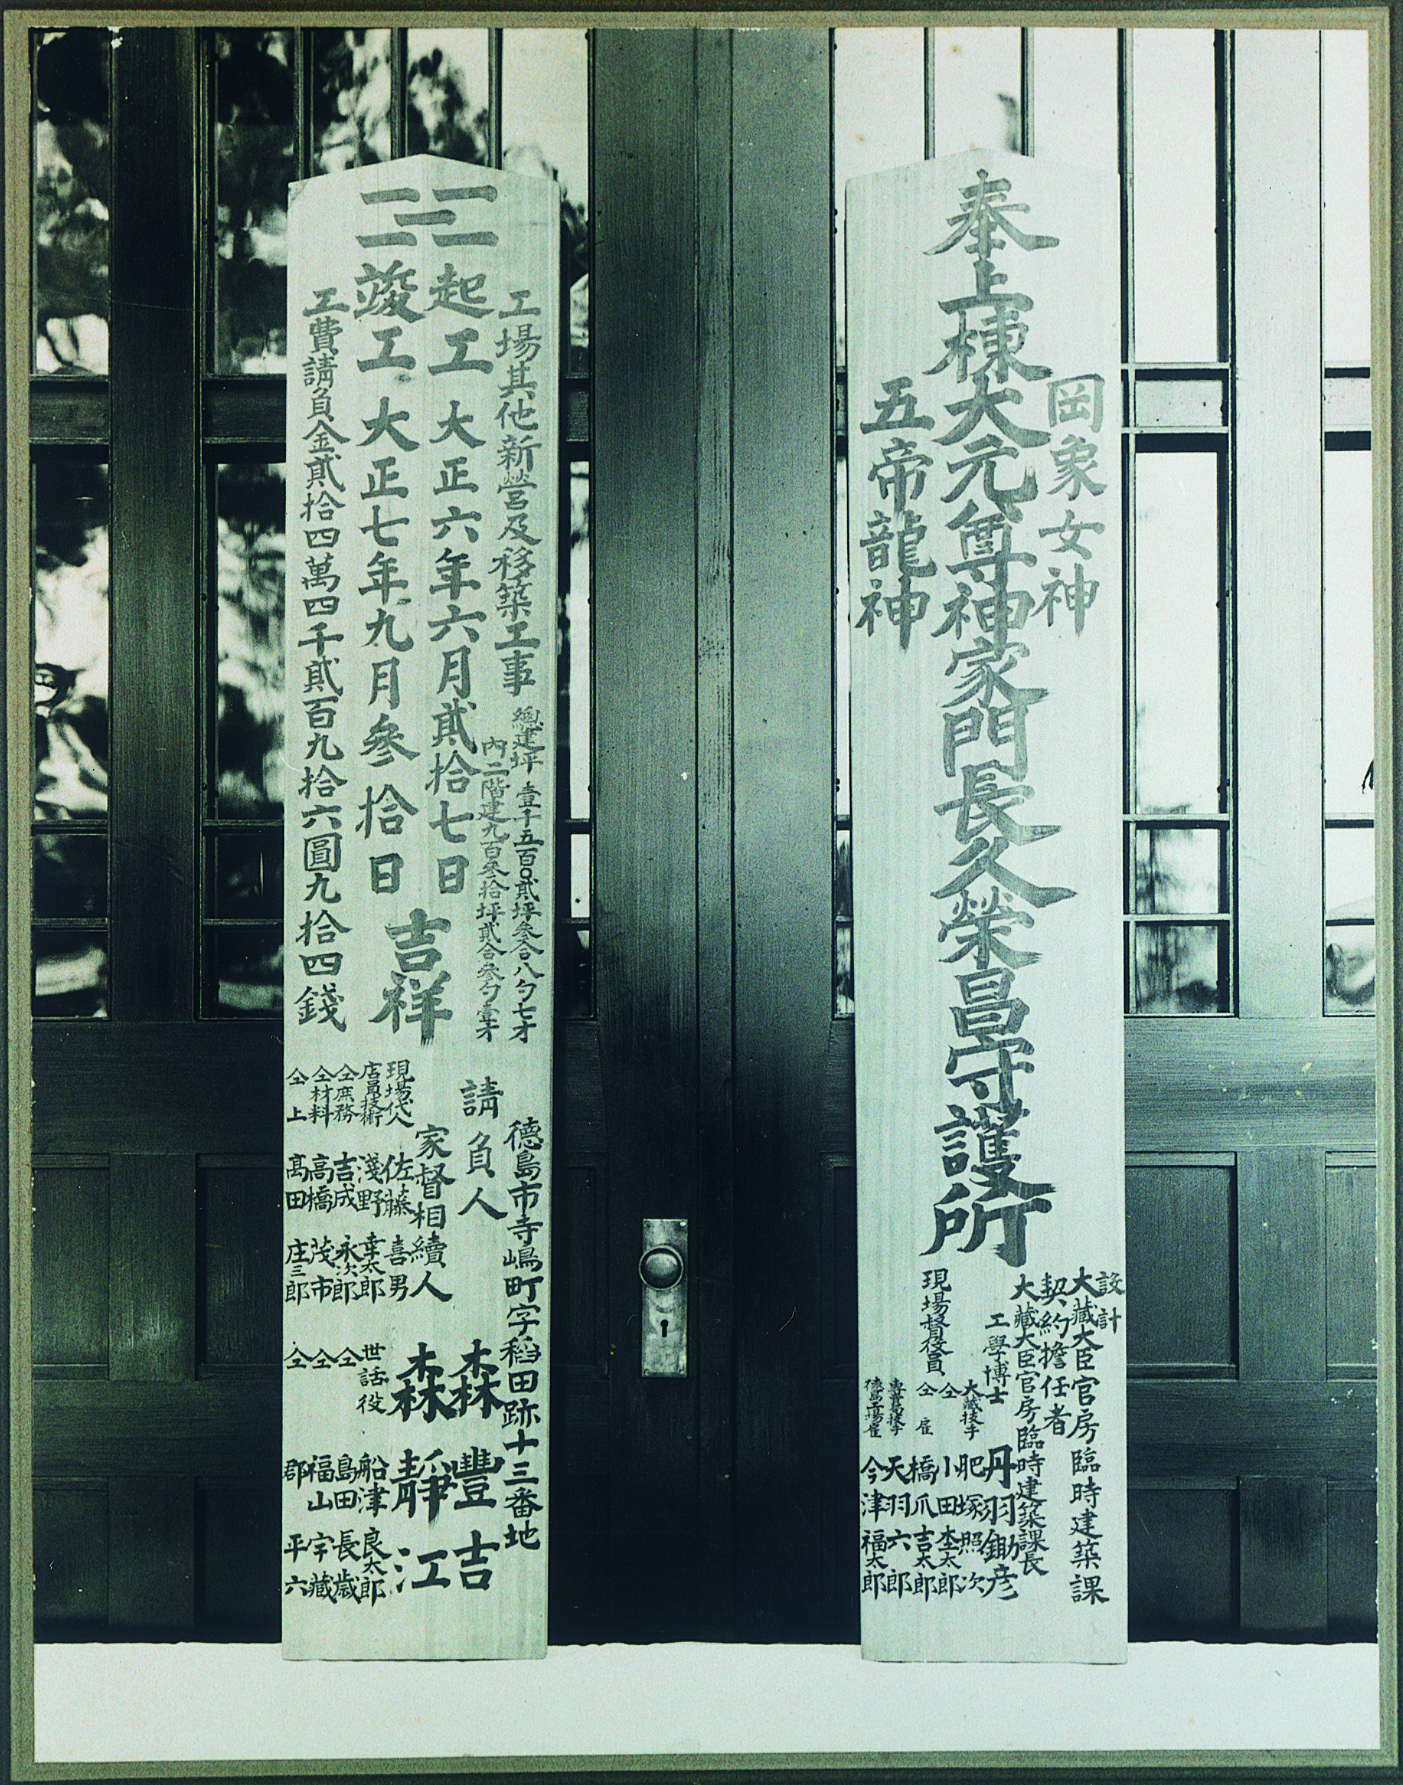 岡象女神
奉上棟大元尊神家門長久榮昌守護所
五帝龍神
設計
大藏大臣官房臨時建築課
契約擔任者
大藏大臣官房臨時建築課長
工學博士 丹羽鋤彦
現場督役員
大藏技手 肥塚照次
仝 小田杢太郎
仝 雇 橋爪吉太郎
專賣局技手 天羽六郎
徳島工場雇 今津福太郎
工場其他新營及移築工事
總建坪 壹千五百〇貳坪叁合八勺七才
内二階建九百叁拾坪貳合叁勺壹才
起工 大正六年六月貳拾七日
竣工 大正七年九月參拾日
吉祥
工費請負金貳拾四萬四千貳百九拾六圓九拾四錢
徳島市寺嶋町字稻田跡十三番地
請負人 森 豐吉
家督相續人 森 靜江
現場代人 佐藤 喜男
店員技術 淺野 幸太郎
仝庶務 吉成 永次郎
仝材料 高橋 茂市
仝上 髙田 庄三郎
世話役 船津 良太郎
仝 島田 長歳
仝 福山 宇藏
仝 郡 平六